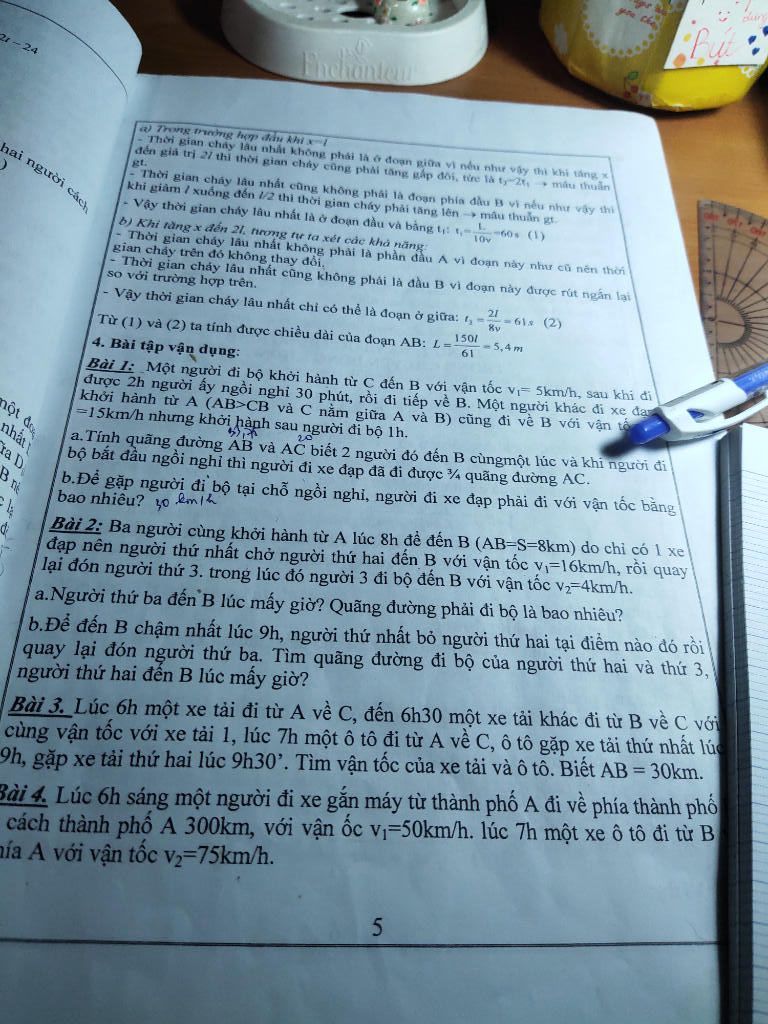 2t – 24
hai người cách
Enchanteur
Bút
a) Trong trường hợp đầu khi x=l
- Thời gian cháy lâu nhất không phải là ở đoạn giữa vì nếu như vậy thì khi tăng x
đến giá trị 2l thì thời gian cháy cũng phải tăng gấp đôi, tức là t₂=2t₁ → mâu thuẫn
gt.
- Thời gian cháy lâu nhất cũng không phải là đoạn phía đầu B vì nếu như vậy thì
khi giảm l xuống đến l/2 thì thời gian cháy phải tăng lên → mâu thuẫn gt.
- Vậy thời gian cháy lâu nhất là ở đoạn đầu và bằng t₁: t₁= L/10v =60s (1)
b) Khi tăng x đến 2l, tương tự ta xét các khả năng:
- Thời gian cháy lâu nhất không phải là phần đầu A vì đoạn này như cũ nên thời
gian cháy trên đó không thay đổi.
- Thời gian cháy lâu nhất cũng không phải là đầu B vì đoạn này được rút ngắn lại
so với trường hợp trên.
- Vậy thời gian cháy lâu nhất chỉ có thể là đoạn ở giữa: t₂ = 2l/8v = 61s (2)
Từ (1) và (2) ta tính được chiều dài của đoạn AB: L = 150l/61 = 5,4m
4. Bài tập vận dụng:
Bài 1: Một người đi bộ khởi hành từ C đến B với vận tốc v₁= 5km/h, sau khi đi
được 2h người ấy ngồi nghỉ 30 phút, rồi đi tiếp về B. Một người khác đi xe đạp
khởi hành từ A (AB>CB và C nằm giữa A và B) cũng đi về B với vận
=15km/h nhưng khởi hành sau người đi bộ 1h.
20
a.Tính quãng đường AB và AC biết 2 người đó đến B cùngmột lúc và khi người đi
bộ bắt đầu ngồi nghỉ thì người đi xe đạp đã đi được ¾ quãng đường AC.
b.Để gặp người đi bộ tại chỗ ngồi nghỉ, người đi xe đạp phải đi với vận tốc bằng
bao nhiêu? 30 km/h
Bài 2: Ba người cùng khởi hành từ A lúc 8h để đến B (AB=S=8km) do chỉ có 1 xe
đạp nên người thứ nhất chở người thứ hai đến B với vận tốc v₁=16km/h, rồi quay
lại đón người thứ 3. trong lúc đó người 3 đi bộ đến B với vận tốc v₂=4km/h.
a.Người thứ ba đến B lúc mấy giờ? Quãng đường phải đi bộ là bao nhiêu?
b.Để đến B chậm nhất lúc 9h, người thứ nhất bỏ người thứ hai tại điểm nào đó rồi
quay lại đón người thứ ba. Tìm quãng đường đi bộ của người thứ hai và thứ 3,
người thứ hai đến B lúc mấy giờ?
Bài 3. Lúc 6h một xe tải đi từ A về C, đến 6h30 một xe tải khác đi từ B về C với
cùng vận tốc với xe tải 1, lúc 7h một ô tô đi từ A về C, ô tô gặp xe tải thứ nhất lúc
9h, gặp xe tải thứ hai lúc 9h30’. Tìm vận tốc của xe tải và ô tô. Biết AB = 30km.
Bài 4. Lúc 6h sáng một người đi xe gắn máy từ thành phố A đi về phía thành phố
cách thành phố A 300km, với vận ốc v₁=50km/h. lúc 7h một xe ô tô đi từ B
hía A với vận tốc v₂=75km/h.
5